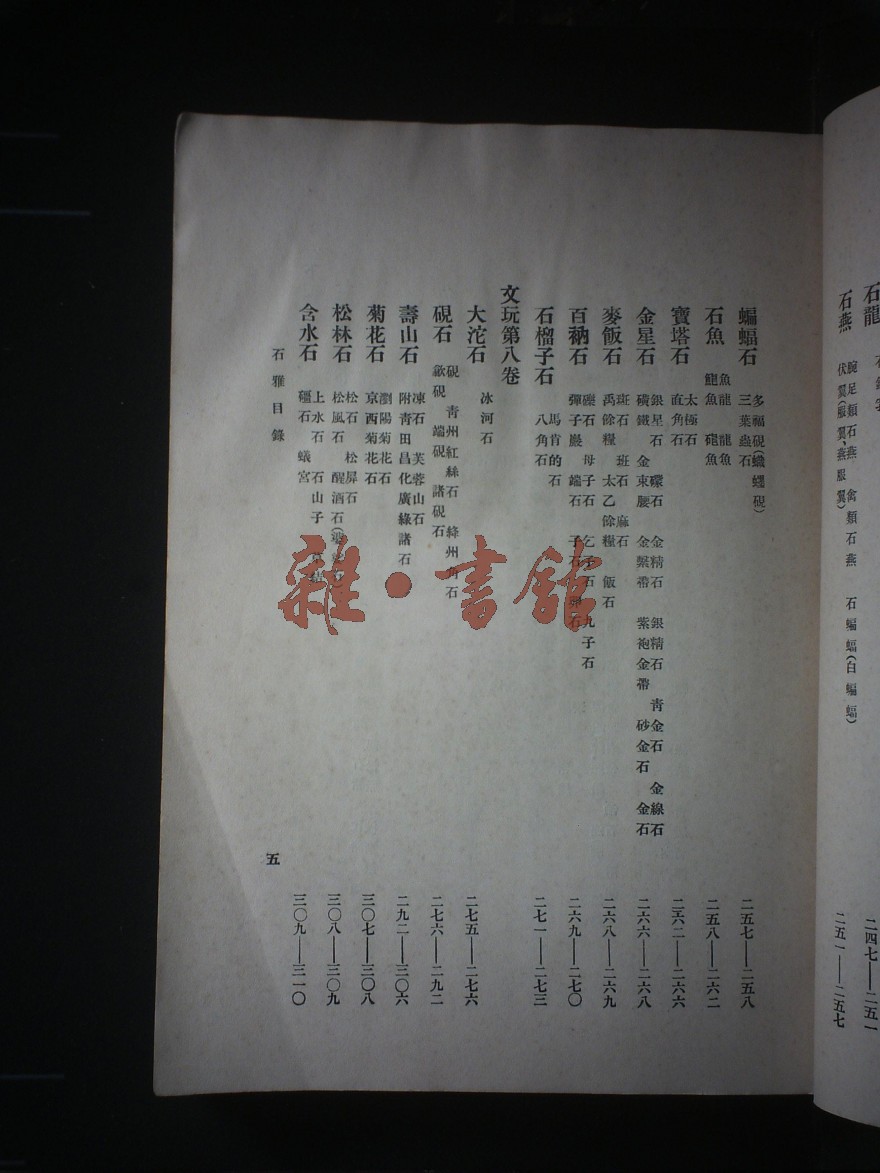 石龍
二四七——二五一
石燕
腕足類石燕 禽類石燕 石蝙蝠(白蝙蝠)
伏翼(服翼、燕服翼)
二五一——二五七
蝙蝠石
多福硯(蟙䘃硯)
三葉蟲石
二五七——二五八
石魚
魚龍 龍魚
鮑魚 䃈魚
二五八——二六二
寶塔石
太極石
直角石
二六二——二六六
金星石
銀星石 礞石 金精石 銀精石 靑金石 金線石
礦鐵 金束腰 金繫帶 紫袍金帶 砂金石 金石
二六六——二六八
麥飯石
斑石 班石 麻石
禹餘糧 太乙餘糧 飯石
二六八——二六九
百衲石
礫石 母子石 乞子石 九子石
彈子巖 端石 子石 彈石
二六九——二七〇
石榴子石
馬肯的石
八角石
二七一——二七三
文玩第八卷
大沱石
冰河石
二七五——二七六
硯石
硯 靑州紅絲石 絳州角石
歙硯 端硯 諸硯石
二七六——二九二
壽山石
凍石 芙蓉山石
附靑田昌化廣綠諸石
二九二——三〇六
菊花石
瀏陽菊花石
京西菊花石
三〇七——三〇八
松林石
松石 松屏石
松風石 醒酒石
三〇八——三〇九
含水石
上水石 石山子
殭石 蟻宮
三〇九——三一〇
石雅目錄
五
雜·書館